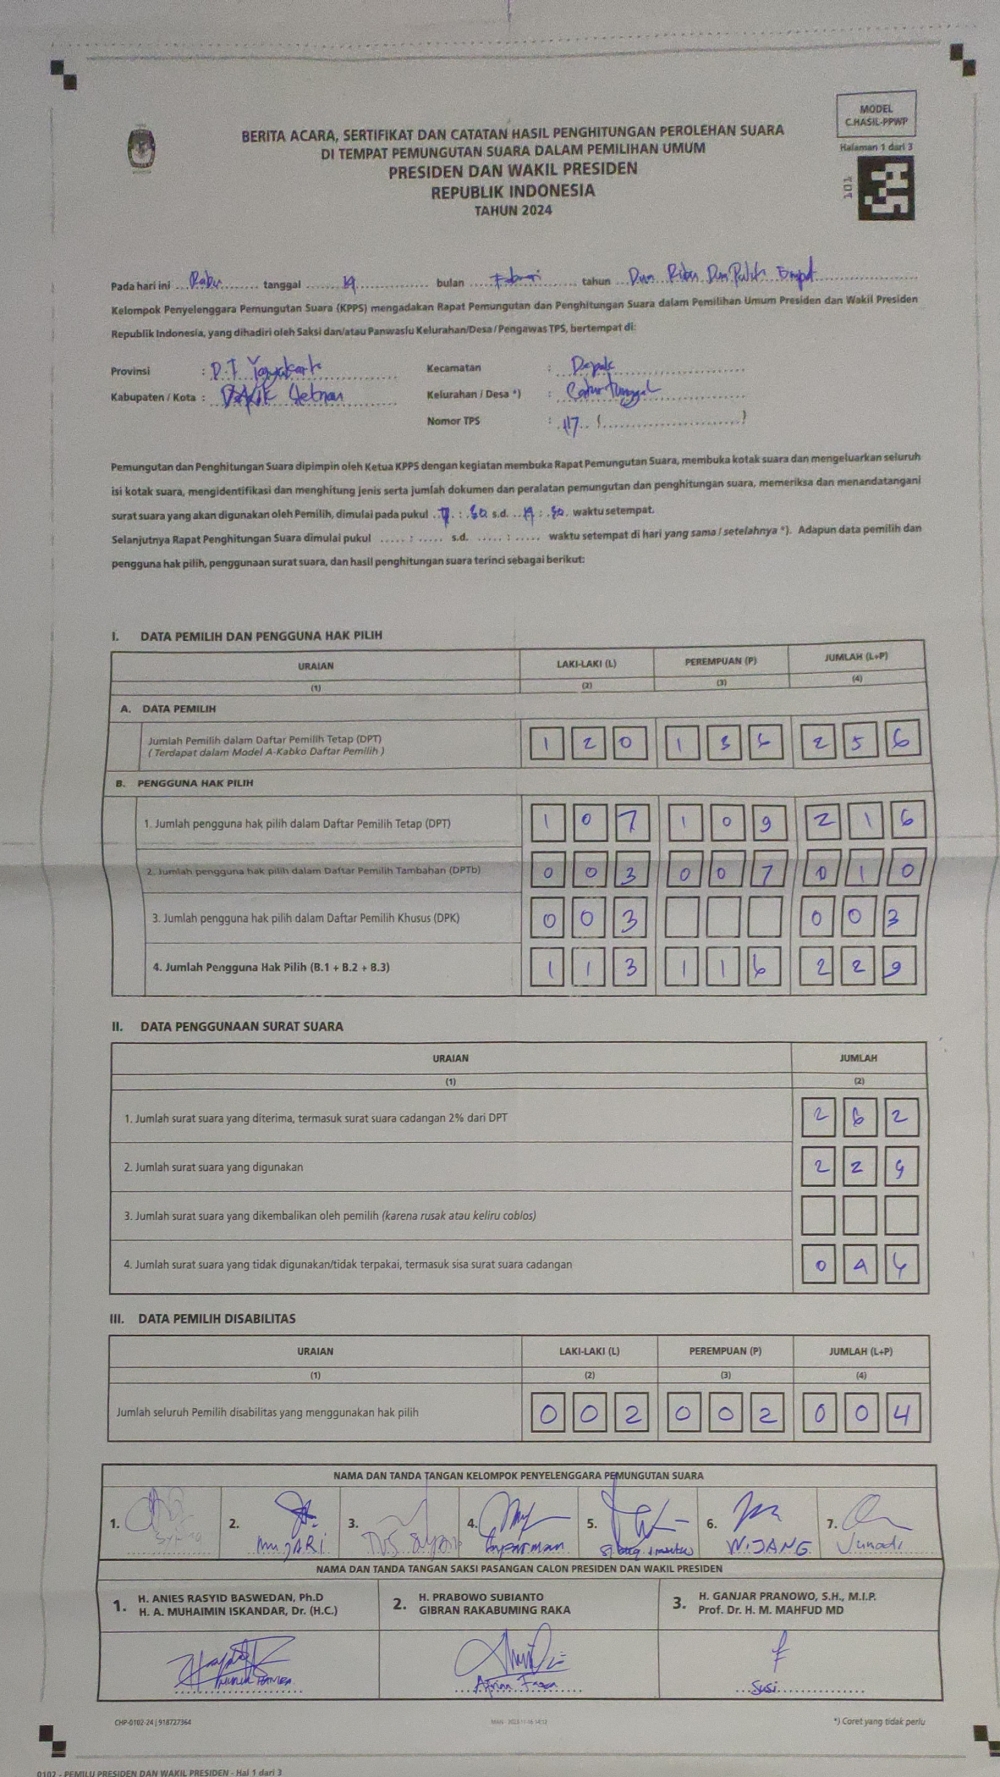 MODEL
C.HASIL-PPWP
Halaman 1 dari 3
BERITA ACARA, SERTIFIKAT DAN CATATAN HASIL PENGHITUNGAN PEROLEHAN SUARA
DI TEMPAT PEMUNGUTAN SUARA DALAM PEMILIHAN UMUM
PRESIDEN DAN WAKIL PRESIDEN
REPUBLIK INDONESIA
TAHUN 2024
Pada hari ini Rabu tanggal 14 bulan Februari tahun Dua Ribu Dua Puluh Empat
Kelompok Penyelenggara Pemungutan Suara (KPPS) mengadakan Rapat Pemungutan dan Penghitungan Suara dalam Pemilihan Umum Presiden dan Wakil Presiden
Republik Indonesia, yang dihadiri oleh Saksi dan/atau Panwaslu Kelurahan/Desa / Pengawas TPS, bertempat di:
Provinsi : D.I Yogyakarta Kecamatan : Depok
Kabupaten / Kota : Sleman Kelurahan / Desa *) : Catur Tunggal
Nomor TPS : 117 (......)
Pemungutan dan Penghitungan Suara dipimpin oleh Ketua KPPS dengan kegiatan membuka Rapat Pemungutan Suara, membuka kotak suara dan mengeluarkan seluruh
isi kotak suara, mengidentifikasi dan menghitung jenis serta jumlah dokumen dan peralatan pemungutan dan penghitungan suara, memeriksa dan menandatangani
surat suara yang akan digunakan oleh Pemilih, dimulai pada pukul s.d. waktu setempat.
Selanjutnya Rapat Penghitungan Suara dimulai pukul ..... : ..... s.d. ..... : ..... waktu setempat di hari yang sama / setelahnya *). Adapun data pemilih dan
pengguna hak pilih, penggunaan surat suara, dan hasil penghitungan suara terinci sebagai berikut:
I. DATA PEMILIH DAN PENGGUNA HAK PILIH
URAIAN LAKI-LAKI (L) PEREMPUAN (P) JUMLAH (L+P)
(1) (2) (3) (4)
A. DATA PEMILIH
Jumlah Pemilih dalam Daftar Pemilih Tetap (DPT) 1 2 0 1 3 6 2 5 6
( Terdapat dalam Model A-Kabko Daftar Pemilih )
B. PENGGUNA HAK PILIH
1. Jumlah pengguna hak pilih dalam Daftar Pemilih Tetap (DPT) 1 0 7 1 0 9 2 1 6
2. Jumlah pengguna hak pilih dalam Daftar Pemilih Tambahan (DPTb) 0 0 3 0 0 7 0 1 0
3. Jumlah pengguna hak pilih dalam Daftar Pemilih Khusus (DPK) 0 0 3 0 0 3
4. Jumlah Pengguna Hak Pilih (B.1 + B.2 + B.3) 1 1 3 1 1 6 2 2 9
II. DATA PENGGUNAAN SURAT SUARA
URAIAN JUMLAH
(1) (2)
1. Jumlah surat suara yang diterima, termasuk surat suara cadangan 2% dari DPT 2 6 2
2. Jumlah surat suara yang digunakan 2 2 9
3. Jumlah surat suara yang dikembalikan oleh pemilih (karena rusak atau keliru coblos)
4. Jumlah surat suara yang tidak digunakan/tidak terpakai, termasuk sisa surat suara cadangan 0 4
III. DATA PEMILIH DISABILITAS
URAIAN LAKI-LAKI (L) PEREMPUAN (P) JUMLAH (L+P)
(1) (2) (3) (4)
Jumlah seluruh Pemilih disabilitas yang menggunakan hak pilih 0 0 2 0 0 2 0 0 4
NAMA DAN TANDA TANGAN KELOMPOK PENYELENGGARA PEMUNGUTAN SUARA
1. 2. MUJARI 3. 4. 5. 6. WIJANG 7. Junadi
NAMA DAN TANDA TANGAN SAKSI PASANGAN CALON PRESIDEN DAN WAKIL PRESIDEN
1. H. ANIES RASYID BASWEDAN, Ph.D
H. A. MUHAIMIN ISKANDAR, Dr. (H.C.)
2. H. PRABOWO SUBIANTO
GIBRAN RAKABUMING RAKA
3. H. GANJAR PRANOWO, S.H., M.I.P.
Prof. Dr. H. M. MAHFUD MD
Susi
CHP-0102-24 | 918727364
*) Coret yang tidak perlu
0102 - PEMILU PRESIDEN DAN WAKIL PRESIDEN - Hal 1 dari 3